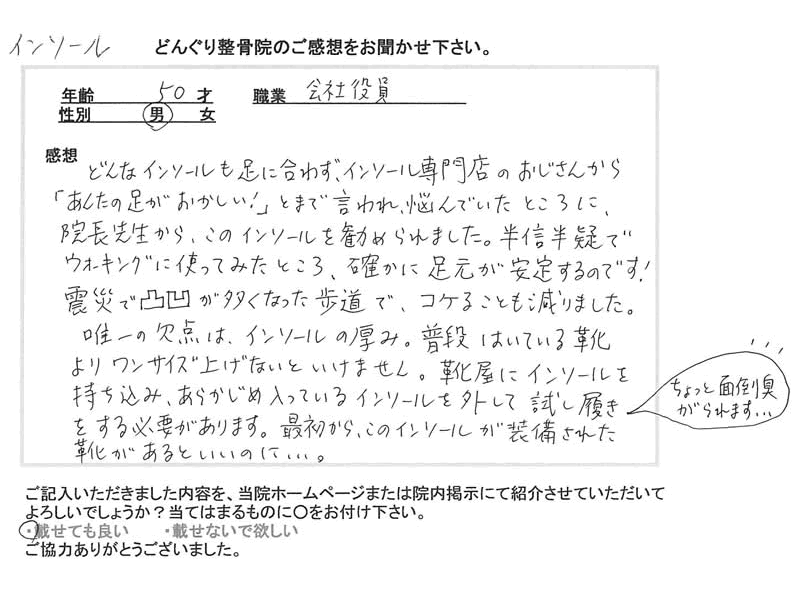 インソール
どんぐり整骨院のご感想をお聞かせ下さい。
年齢 50 才 職業 会社役員
性別 男 女
感想
どんなインソールも足に合わず、インソール専門店のおじさんから
「あんたの足がおかしい!」とまで言われ、悩んでいたところに、
院長先生から、このインソールを勧められました。半信半疑で
ウォーキングに使ってみたところ、確かに足元が安定するのです!
震災で凸凹が多くなった歩道で、コケることも減りました。
唯一の欠点は、インソールの厚み。普段はいている靴
よりワンサイズ上げないといけません。靴屋にインソールを
持ち込み、あらかじめ入っているインソールを外して試し履き
をする必要があります。最初から、このインソールが装備された
靴があるといいのに…。
ちょっと面倒臭
がられます…
ご記入いただきました内容を、当院ホームページまたは院内掲示にて紹介させていただいて
よろしいでしょうか?当てはまるものに〇をお付け下さい。
・載せても良い ・載せないで欲しい
ご協力ありがとうございました。